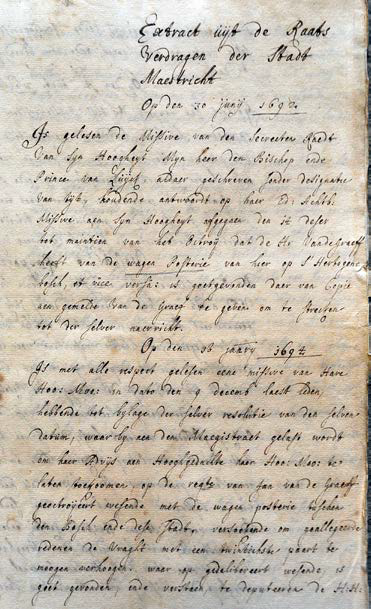 Extract uijt de Raats
Verdragen der Stadt
Maestricht
Op den 30 junij 1692
Is gelesen de Missive van den Secreeten Raedt
van Syn Hoogheyt Myn heer den Bischop ende
Prince van Luijck aldaer geschreven sonder designatie
van tijt, houdende antwoordt op haer Ed: Achtb:
Missive aen syn Hoogheyt afgegaen den deser
tot maintien van het Octroij dat de Hr Vandegraeff
heeft van de wagen Posterie van hier op S Hertogen
bosch, et vice versa: is goetgevonden daer van Copie
aen gemelte Van de Graef te geven om te strecken
tot der selver naericht.
Op den 18 jaary 1694
Is met alle respect gelesen eene missive van Hare
Hoo: Moe: in dato den 9 decemb laest leden,
hebbende tot bylage der selver resolutie van den selven
datum, waer by aen dem Magistraet gelast wordt
om haer Advijs aen Hooghgedachte haer Hoo: Moe: te
laten toecoomen, op de regte van Jan van de Graeff
geoctroijeert wesende met de wagen posterie tusschen
den Bosch ende dese Stadt, versoekende om geallegeerde
redenen de Vraght met een twintichste paert te
moogen verhoogen. waer op gedelibereert wesende is
goet gevonden, ende versteen, te deputeeren de H:H: